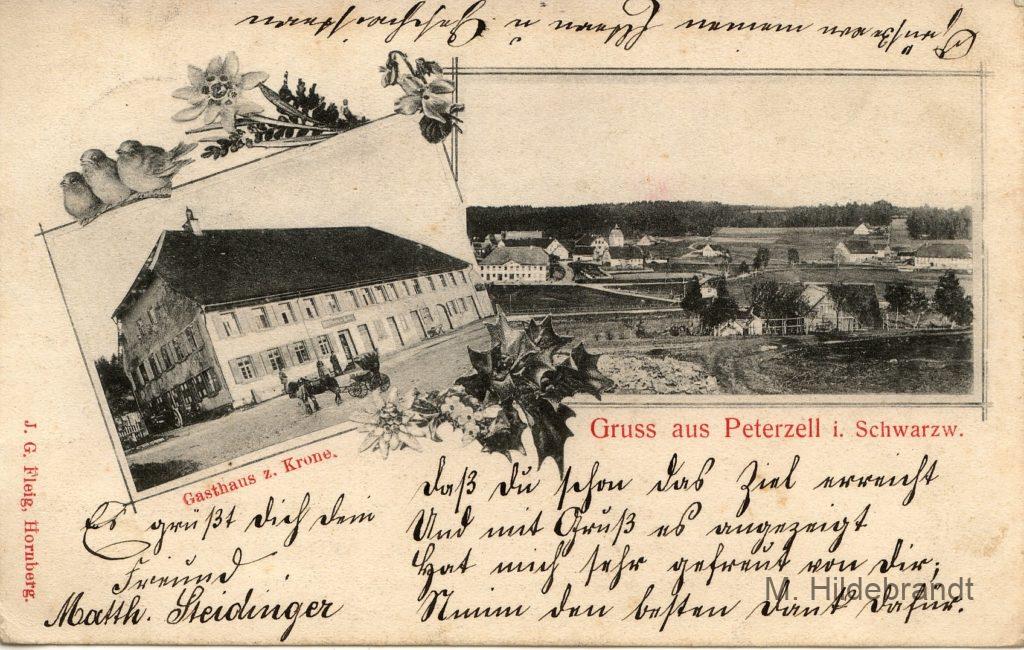 Grüße an meinen Freun u Geschwistern
Gruss aus Peterzell i. Schwarzw.
Gasthaus z. Krone.
J. G. Fleig, Hornberg.
daß du schon das Ziel erreicht
Und mit Gruß es angezeigt
Hat mich sehr gefreut von dir;
Nimm den besten Dank dafür.
Es grüßt dich dein
Freund
Matth. Steidinger
M. Hildebrandt